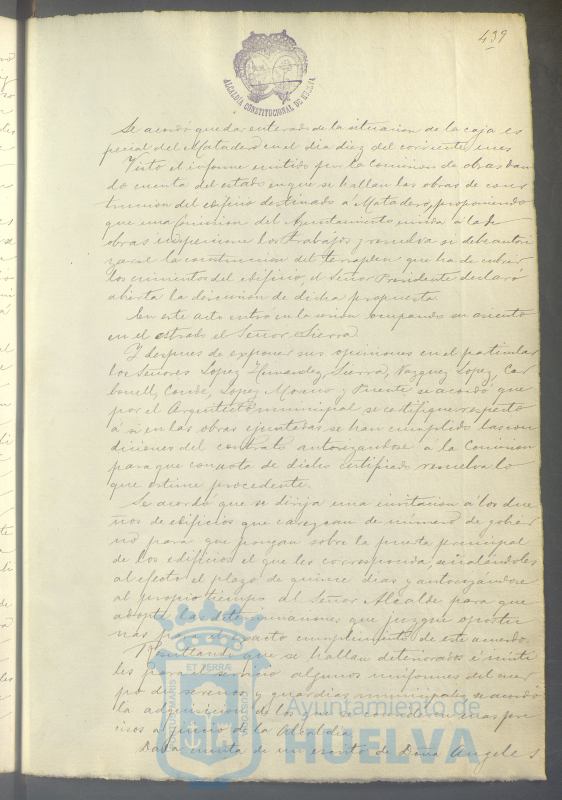 439
ALCALDÍA CONSTITUCIONAL DE HUELVA
Se acordó quedar enterado de la situacion de la caja es
pecial del Matadero en el dia diez del corriente mes
Visto el informe emitido por la Comision de obras dan
do cuenta del estado en que se hallan las obras de cons
truccion del edificio destinado á Matadero, proponiendo
que una Comision del Ayuntamiento unida á la de
obras inspeccione los trabajos y resuelva si debe autori
zarse la construccion del terraplen que ha de cubrir
los cimientos del edificio, el Señor Presidente declaró
abierta la discusion de dicha propuesta.
En este acto entró en la sesion ocupando su asiento
en el estrado el Señor Sierra.
Y despues de exponer sus opiniones en el particular
los Señores Lopez Hernandez, Sierra, Vazquez Lopez, Car
bonell, Conde, Lopez Moreno y Puente se acordó que
por el Arquitecto municipal se certifique respecto
á si en las obras ejecutadas se han cumplido las con
diciones del contrato autorizandose á la Comision
para que con vista de dicho certificado resuelva lo
que estime procedente.
Se acordó que se dirija una invitacion á los due
ños de edificios que carezcan de número de gobier
no para que pongan sobre la puerta principal
de los edificios el que les corresponda, señalándoles
al efecto el plazo de quince dias y autorizandose
al propio tiempo al Señor Alcalde para que
adopte las determinaciones que juzgue oportu
nas para el exacto cumplimiento de este acuerdo.
Resultando que se hallan deteriorados é inuti
les para el servicio algunos uniformes del cuer
po de serenos y guardias municipales se acordó
la adquisicion de los que se consideren mas pre
cisos á juicio de la Alcaldia
Dada cuenta de un escrito de Doña Angeles
PORTUS MARIS ET TERRÆ CUSTODIA
Ayuntamiento de
HUELVA